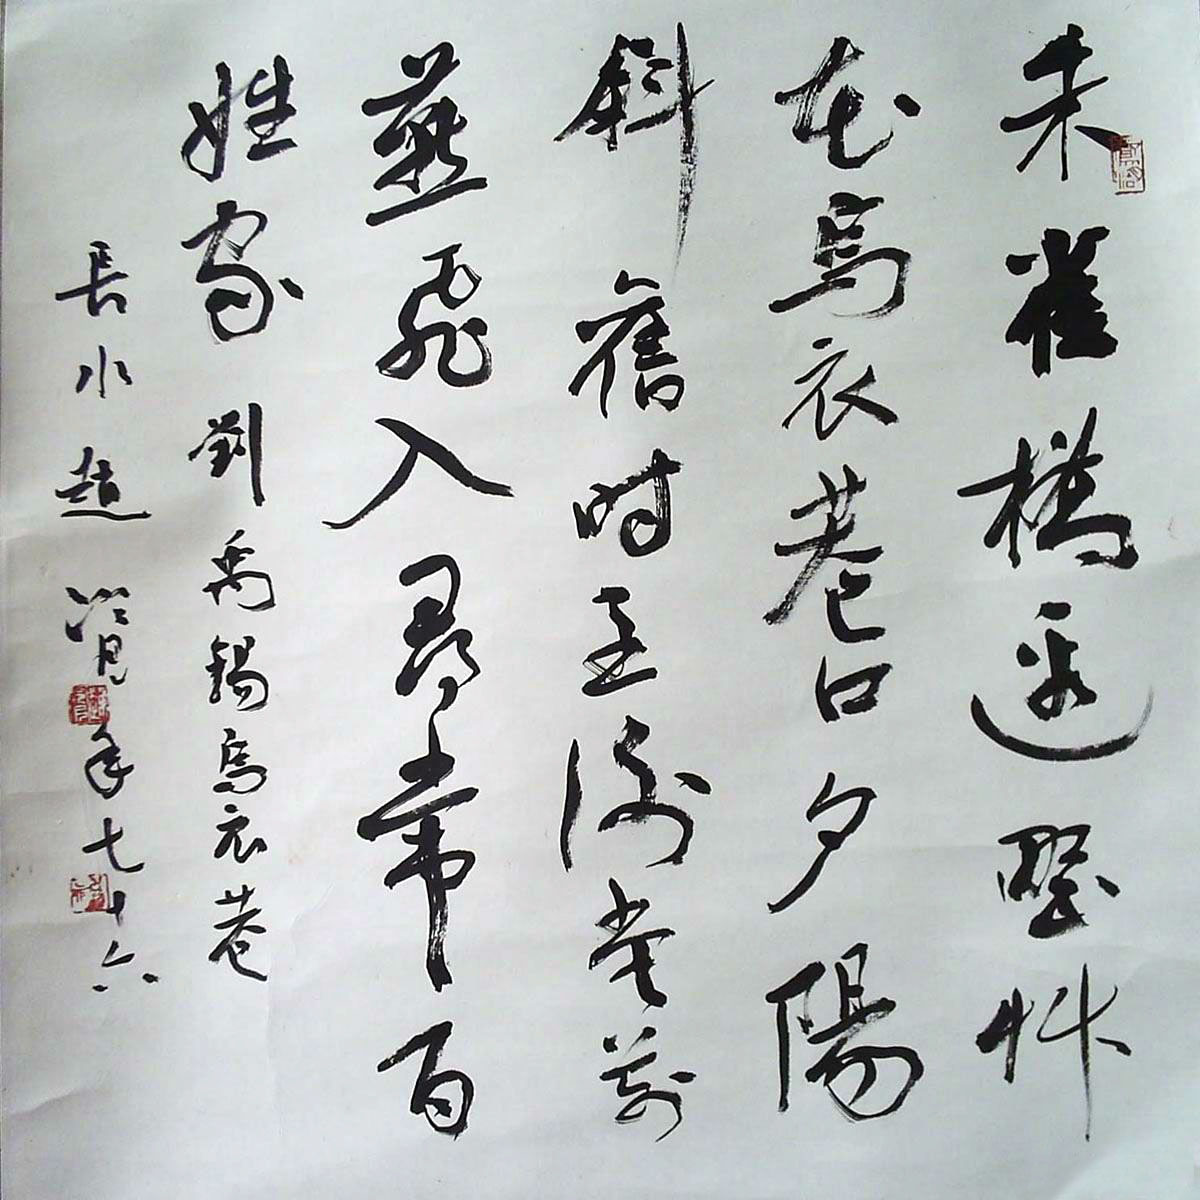 朱雀橋邊野艸
花烏衣巷口夕陽
斜舊时王謝堂前
燕飛入尋常百
姓家 劉禹錫烏衣巷
長水趙 年七十六